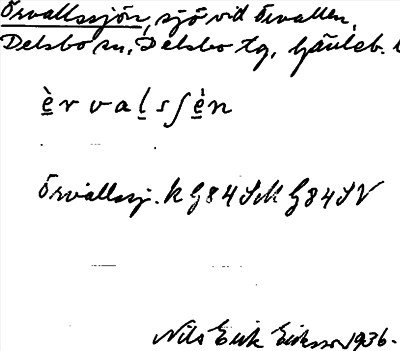 Örvallssjön, sjö vid Örvallen,
Delsbo sn, Delsbo tg, Gävleb. l
è̱ r v a ḻ s ʃ è̱ n
Örvallssj. K G84 SM G84 SV
Nils Erik Eriksson 1936.